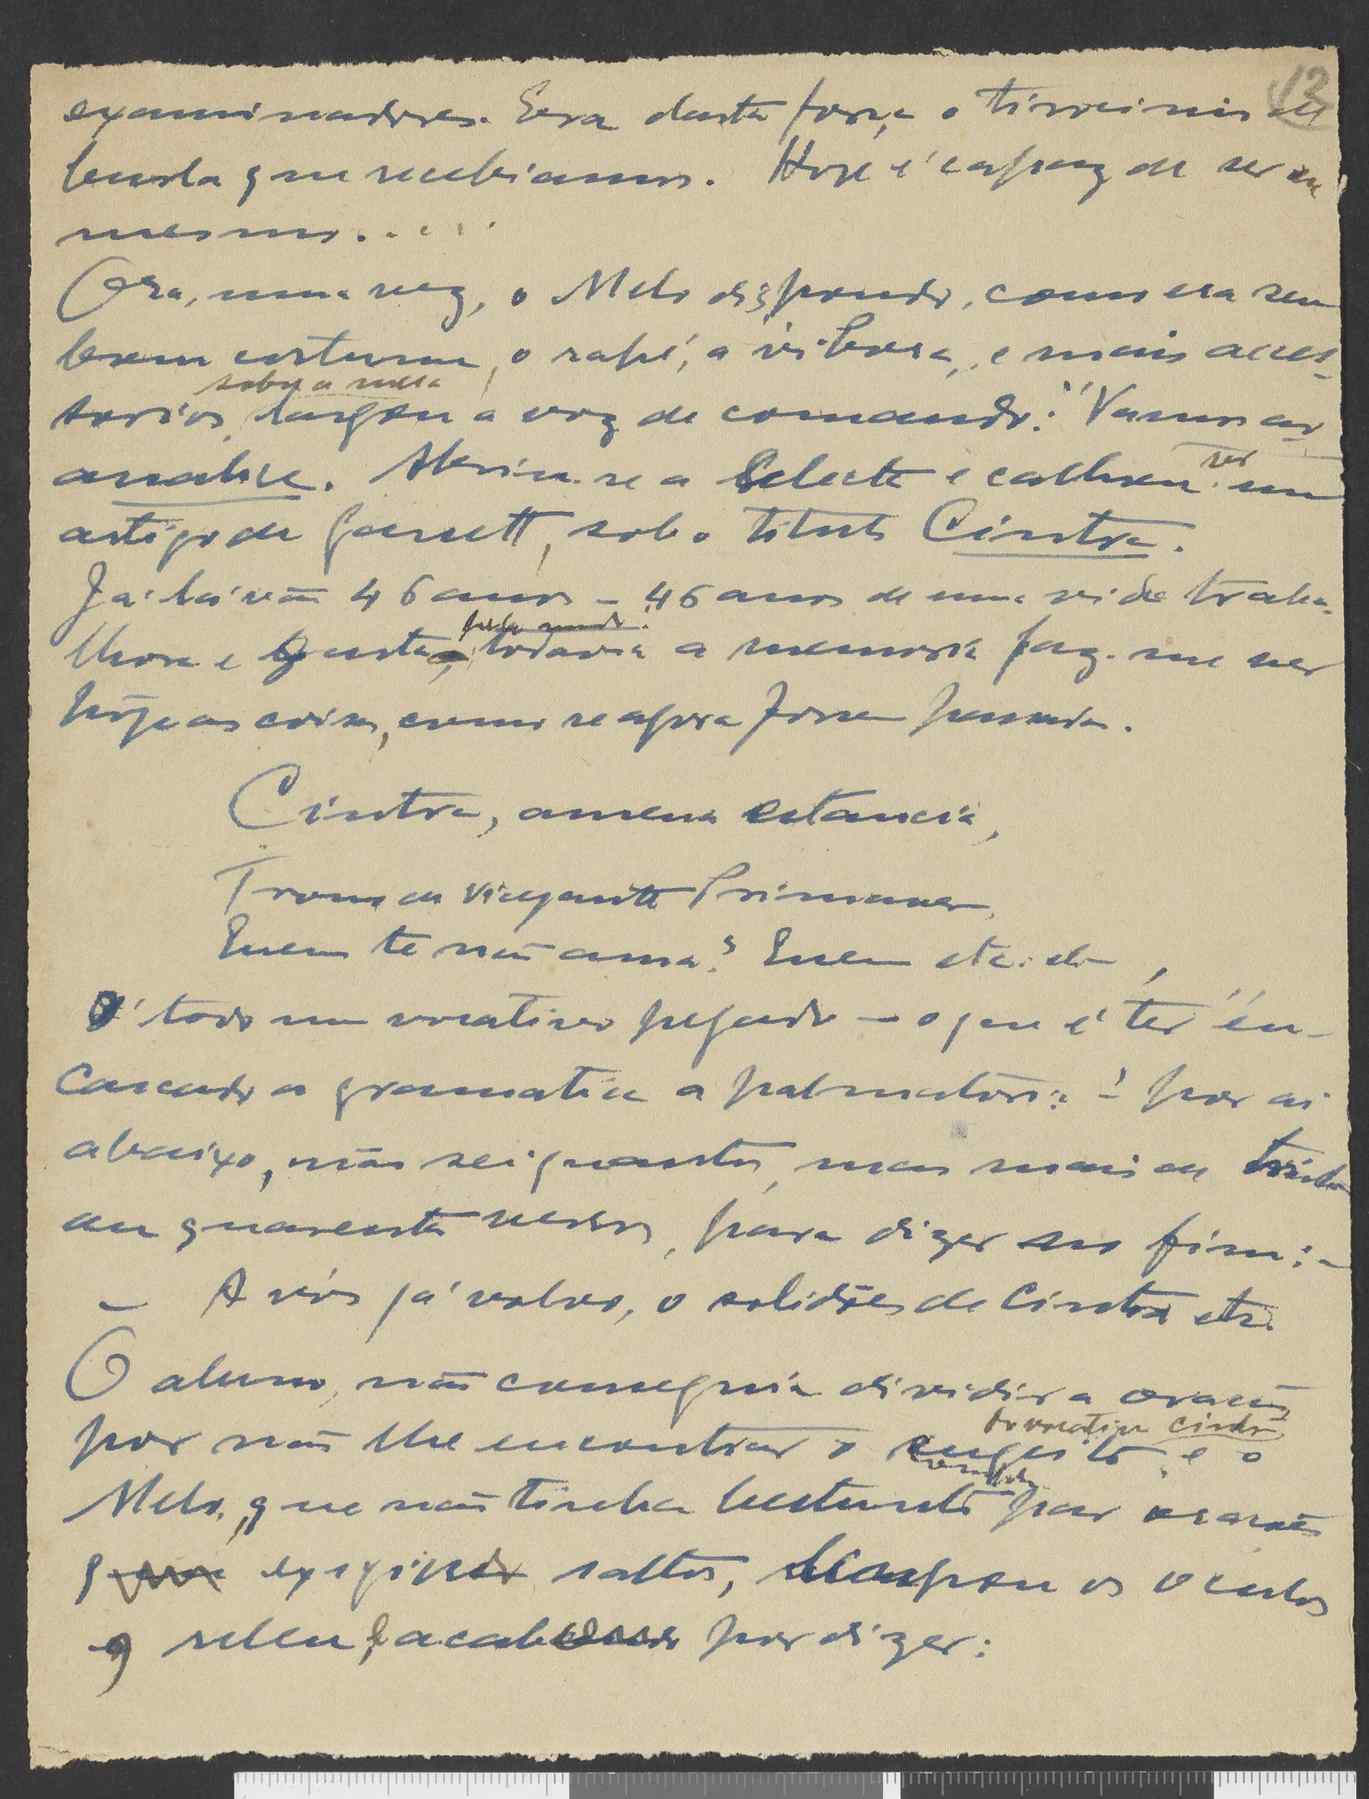 13
examinadores. Era desta força o tirocinio de
burla que recebiamos. Hoje é capaz de ser o
mesmo.....
Ora, uma vez, o Melo dispondo, como era seu
bom costume, o rapé, a vibora, e mais aces-
sobre a mesa
sorios, largou a voz de comando: "Vamos á
analise. Abriu-se a Selecta e calhou ser um
artigo de Garrett, sob o titulo Cintra.
Já lá vão 46 anos - 46 anos de uma vida traba-
pelo mundo
lhosa e gasta, todavia a memoria faz-me ver
hoje as coisas, como se agora fossem passadas.
Cintra, amena estancia,
Trono da vicejante Primavera,
Quem te não ama? Quem etc. etc.,
É todo um vocativo pegado - o que é ter en-
cascado a gramatica a palmatoria! - por ai
abaixo, não sei quantos, mas mais de trinta
ou quarenta versos, para dizer no fim: -
- A vós já volvo, o solidões de Cintra etc.
O aluno, não conseguia dividir a oração
do vocativo Cintra
por não lhe encontrar o sugeito, e o
Melo, que não tinha bestunto para orações
que exigisse saltos, limpou os oculos
releu, e acabou por dizer: